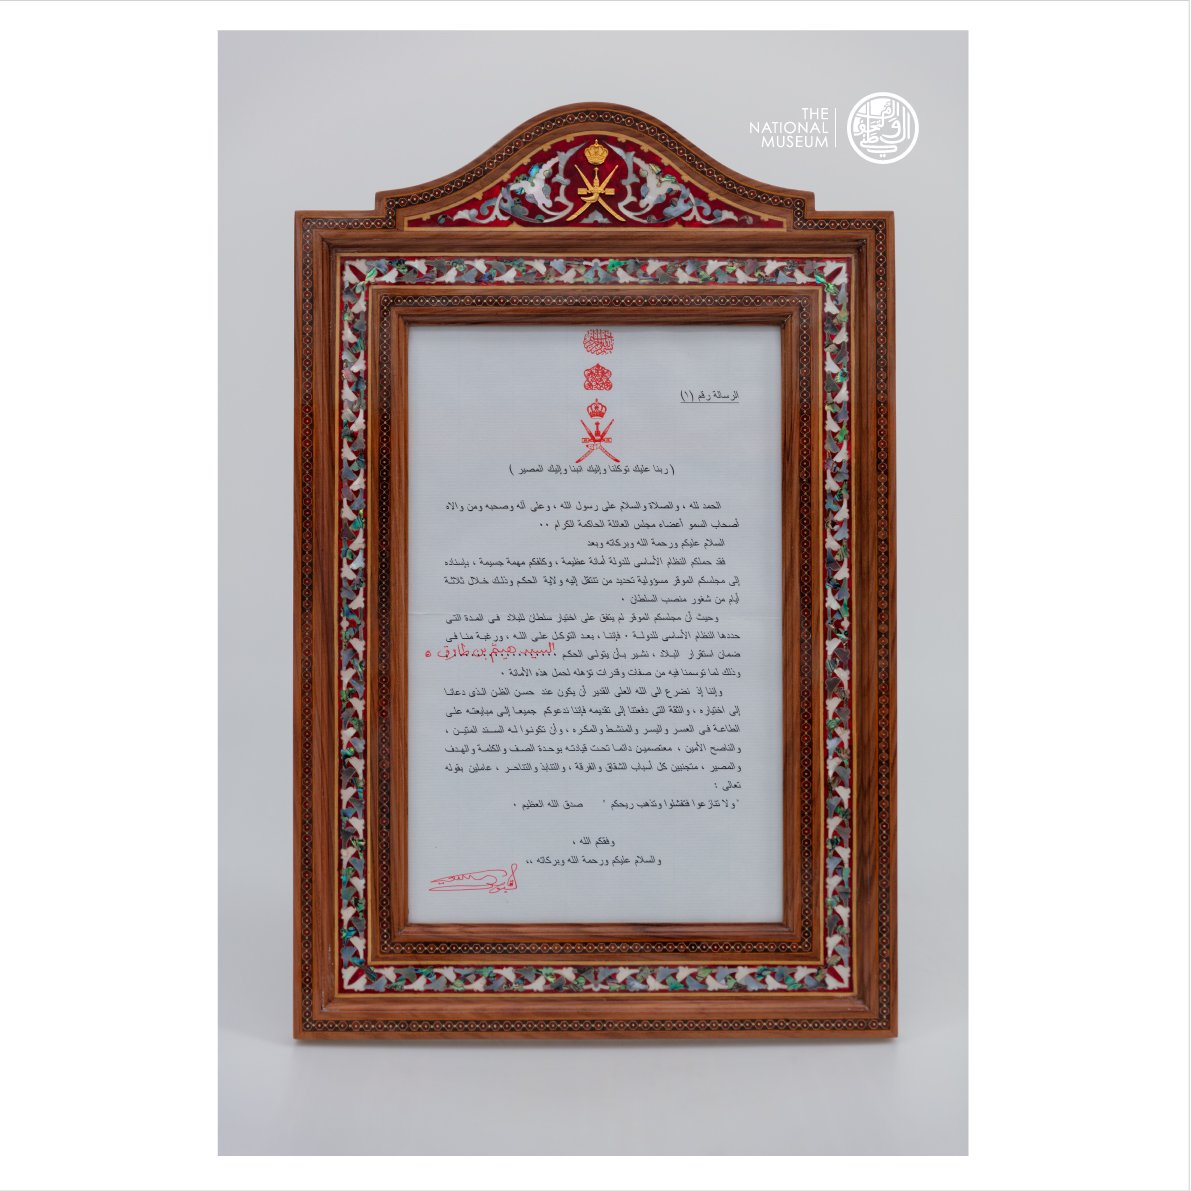 THE
NATIONAL
MUSEUM
الرسالة رقم (١)
( ربنا عليك توكلنا وإليك أنبنا وإليك المصير )
الحمد لله ، والصلاة والسلام على رسول الله ، وعلى آله وصحبه ومن والاه
أصحاب السمو أعضاء مجلس العائلة الحاكمة الكرام ٠٠
السلام عليكم ورحمة الله وبركاته وبعد
فقد حملكم النظام الأساسى للدولة أمانة عظيمة ، وكلفكم مهمة جسيمة ، بإسناده
إلى مجلسكم الموقر مسؤولية تحديد من تنتقل إليه ولاية الحكم وذلك خلال ثلاثة
أيام من شغور منصب السلطان ٠
وحيث أن مجلسكم الموقر لم يتفق على اختيار سلطان للبلاد فى المدة التى
حددها النظام الأساسى للدولة ٠ فإننا ، بعد التوكل على الله ، ورغبة منا فى
ضمان استقرار البلاد ، نشير بأن يتولى الحكم السيد هيثم بن طارق
وذلك لما توسمنا فيه من صفات وقدرات تؤهله لحمل هذه الأمانة ٠
وإننا إذ نضرع الى الله العلى القدير أن يكون عند حسن الظن الذى دعانا
إلى اختياره ، والثقة التى دفعتنا إلى تقديمه فإننا ندعوكم جميعا إلى مبايعته على
الطاعة فى العسر واليسر والمنشط والمكره ، وأن تكونوا له السند المتين ،
والناصح الأمين ، معتصمين دائما تحت قيادته بوحدة الصف والكلمة والهدف
والمصير ، متجنبين كل أسباب الشقاق والفرقة ، والتنابذ والتناحر ، عاملين بقوله
تعالى :
" ولا تنازعوا فتفشلوا وتذهب ريحكم " صدق الله العظيم ٠
وفقكم الله ،
والسلام عليكم ورحمة الله وبركاته ،،